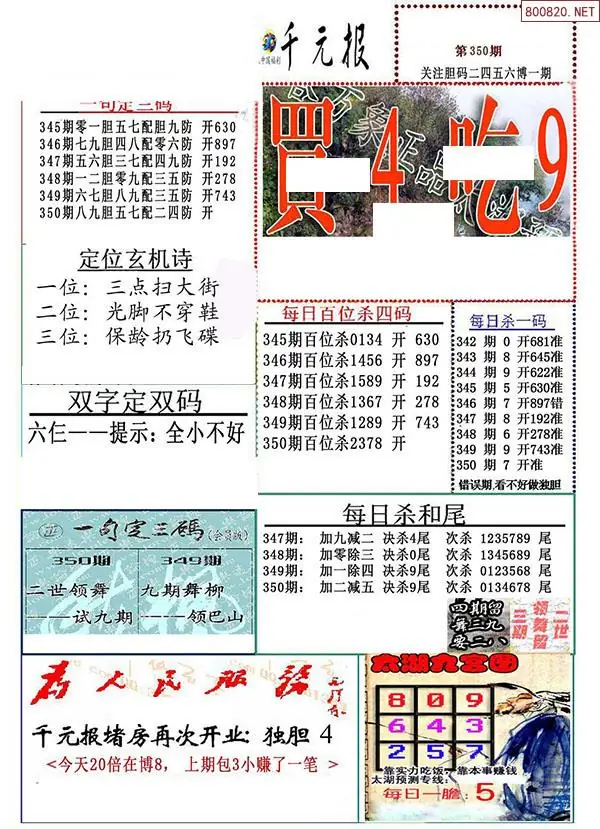 800820.NET
中国福利
千元报
第350期
关注胆码二四五六博一期
一句定三码
345期零一胆五七配胆九防 开630
346期七九胆四八配零六防 开897
347期五六胆三七配四九防 开192
348期一二胆零九配三五防 开278
349期六七胆八九配三五防 开743
350期八九胆五七配二四防 开
買4吃9
定位玄机诗
一位: 三点扫大街
二位: 光脚不穿鞋
三位: 保龄扔飞碟
每日百位杀四码
345期百位杀0134 开 630
346期百位杀1456 开 897
347期百位杀1589 开 192
348期百位杀1367 开 278
349期百位杀1289 开 743
350期百位杀2378 开
每日杀一码
342 期 0 开681准
343 期 8 开645准
344 期 9 开622准
345 期 5 开630准
346 期 7 开897错
347 期 8 开192准
348 期 6 开278准
349 期 9 开743准
350 期 7 开准
错误期,看不好做独胆
双字定双码
六仨——提示: 全小不好
正 一句定三码(会员版)
350期
二世领舞
——试九期
349期
九期舞柳
——领巴山
每日杀和尾
347期: 加九减二 决杀4尾 次杀 1235789 尾
348期: 加零除三 决杀0尾 次杀 1345689 尾
349期: 加一除四 决杀9尾 次杀 0123568 尾
350期: 加二减五 决杀9尾 次杀 0134678 尾
四期留
舞三九
要二八
二世
领舞留
三期
为人民服务
千元报堵房再次开业: 独胆 4
<今天20倍在博8, 上期包3小赚了一笔 >
太湖九宫图
8 0 9
6 4 3
2 5 7
靠实力吃饭 靠本事赚钱
太湖预测专线:
每日一胆: 5